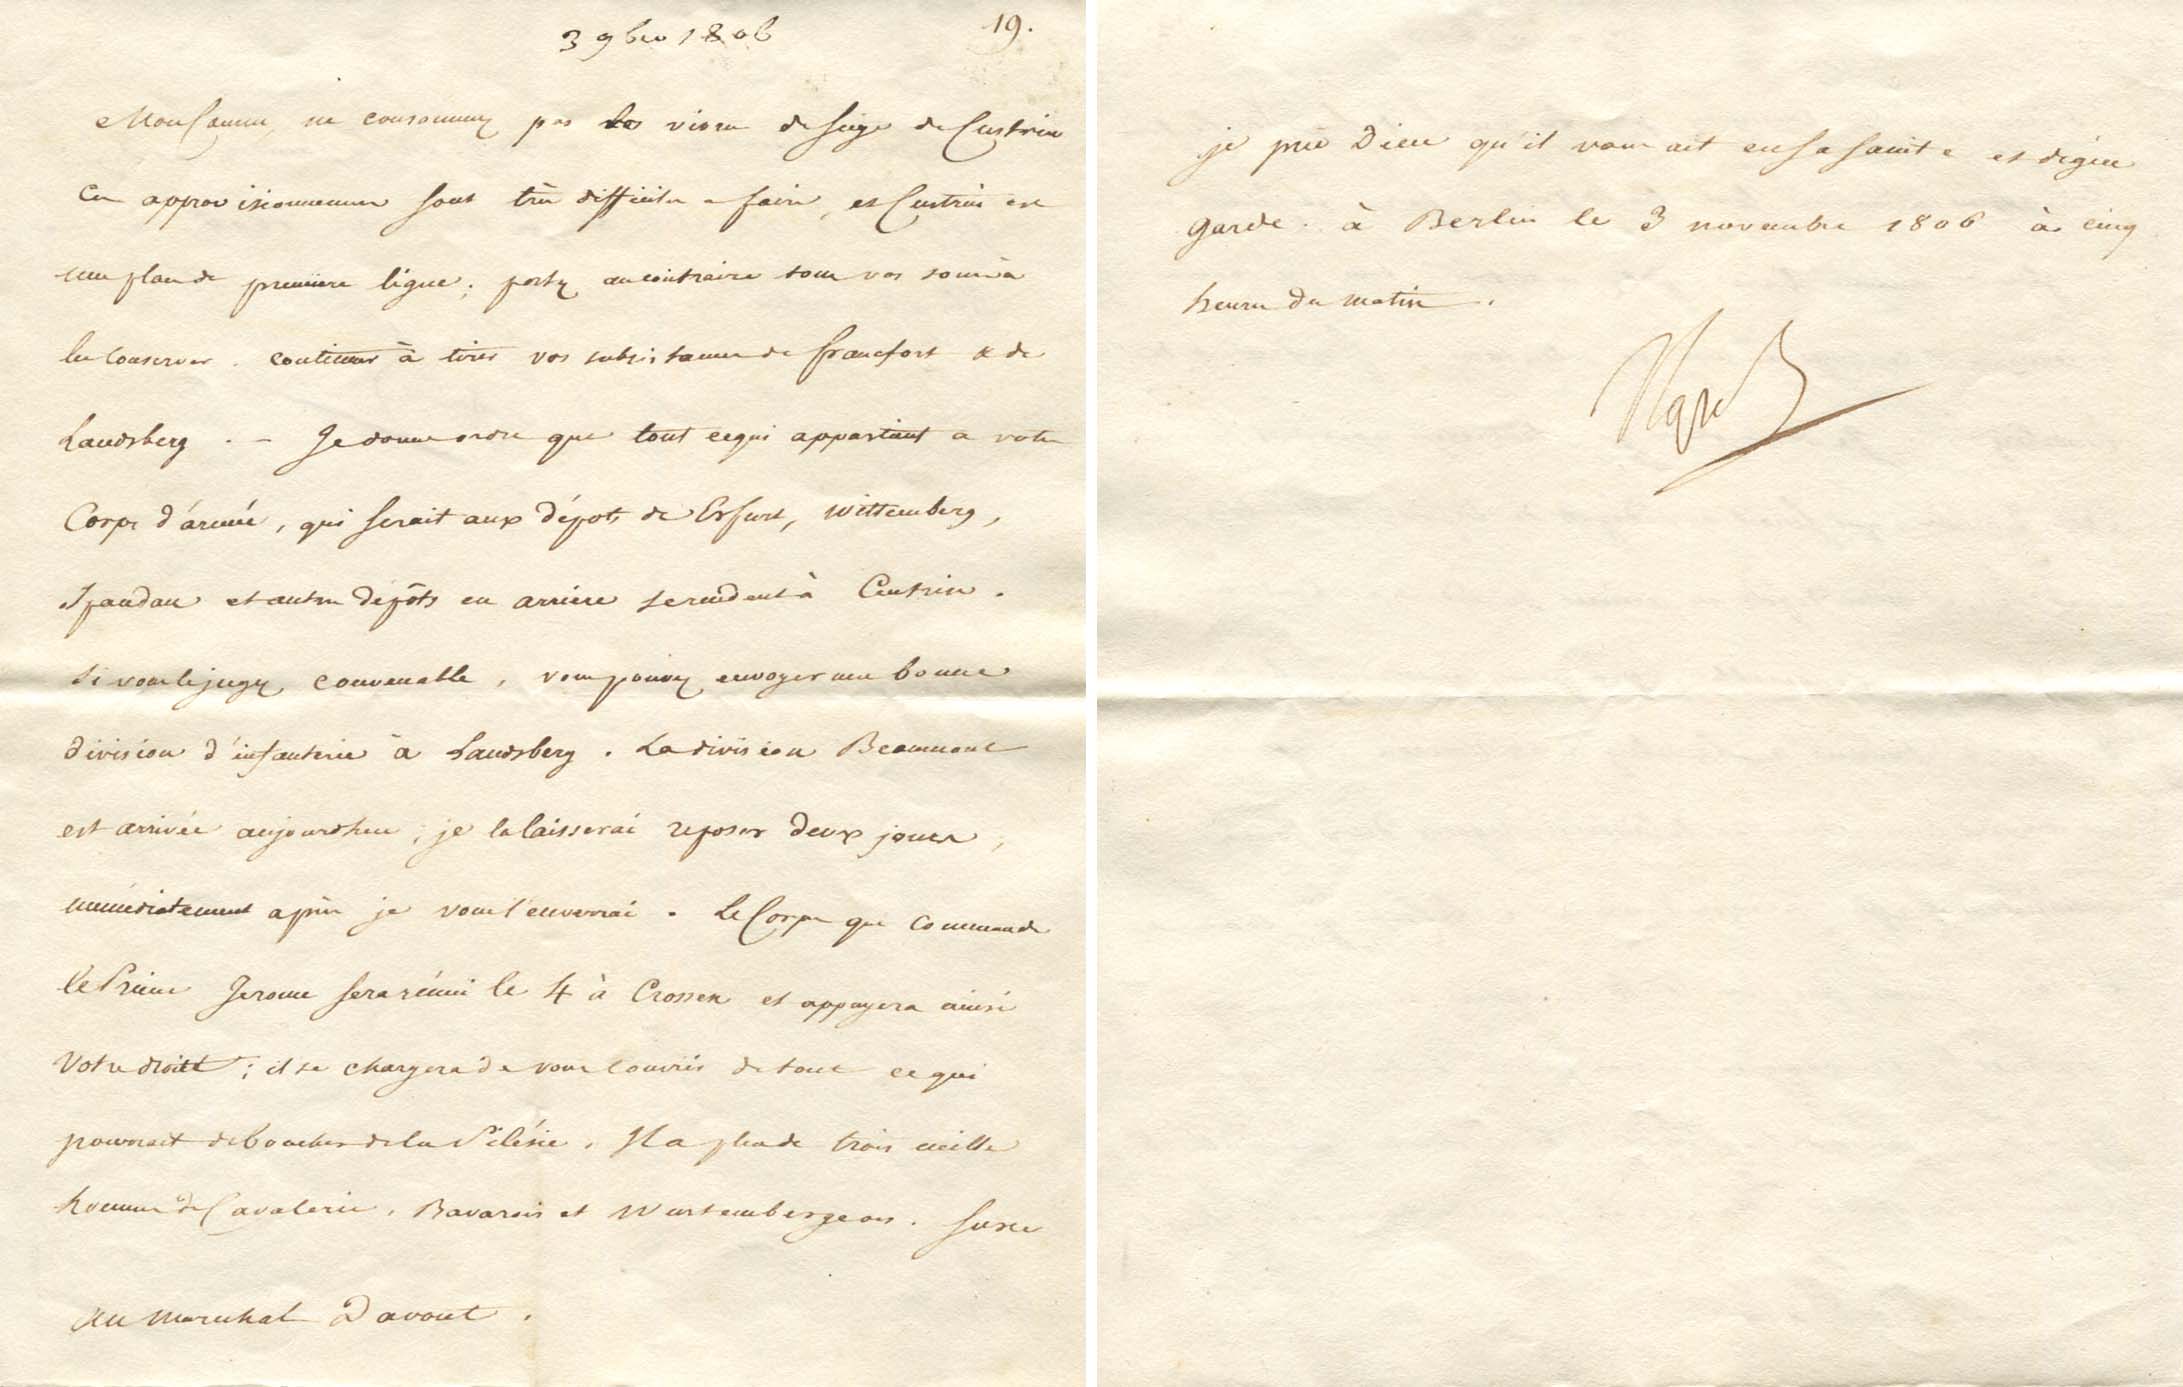 3 9bre 1806
19.
Mon Cousin, ne consommez pas les vivres de siège de Custrin
ces approvisionnemens sont très difficiles a faire, et Custrin est
une place de première ligne; portez au contraire tous vos soins à
les conserver. continuez à tirer vos subsistances de francfort & de
Landsberg. - Je donne ordre que tout ce qui appartient a votre
Corps d'armée, qui serait aux dépots de Erfurt, Wittemberg,
Spandau et autres dépôts en arrière se rendent à Custrin.
Si vous le jugez convenable, vous pouvez envoyer une bonne
division d'infanterie à Landsberg. La division Beaumont
est arrivée aujourdhui; je la laisserai reposer deux jours,
immédiatement après je vous l'enverrai. Le Corps que commande
le Prince Jerome sera réuni le 4 à Crossen et appuyera ainsi
votre droite; il se chargera de vous couvrir de tout ce qui
pourrait déboucher de la Silésie. Il a plus de trois mille
hommes de Cavalerie, Bavarois et Wurtembergeois. Sur ce
Au Marechal Davout.
je prie Dieu qu'il vous ait en sa sainte et digne
garde. à Berlin le 3 novembre 1806 à cinq
heures du matin.